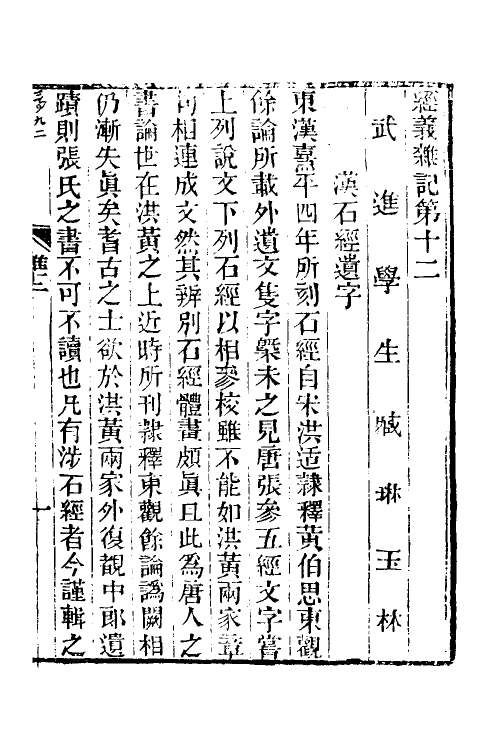 經義雜記第十二
武進學生臧琳玉林
漢石經遺字
東漢熹平四年所刻石經自宋洪适隸釋黃伯思東觀
餘論所載外遺文隻字槩未之見唐張參五經文字嘗
上列說文下列石經以相參校雖不能如洪黃兩家章
句相連成文然其辨別石經體畫頗眞且此爲唐人之
書論世在洪黃之上近時所刊隸釋東觀餘論譌闕相
仍漸失眞矣耆古之士欲於洪黃兩家外復覩中郎遺
蹟則張氏之書不可不讀也凡有涉石經者今謹輯之
一